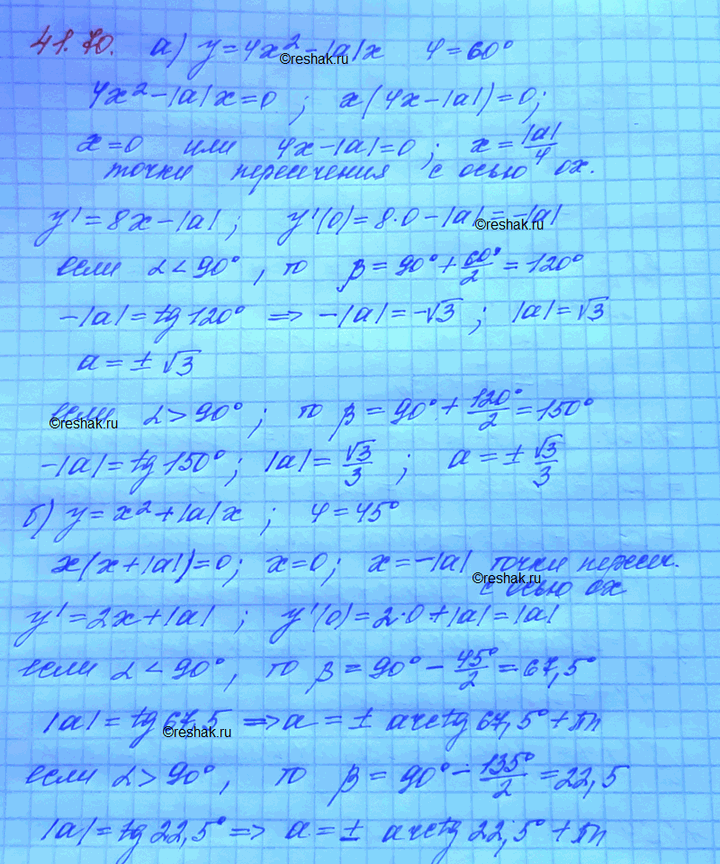 41.70. а) y = 4x² - |a|x φ = 60°
©reshak.ru
4x² - |a|x = 0 ; x(4x - |a|) = 0;
x = 0 или 4x - |a| = 0 ; x = |a|/4
точки пересечения с осью ох.
y' = 8x - |a| ; y'(0) = 8·0 - |a| = -|a|
©reshak.ru
если α < 90° , то β = 90° + 60°/2 = 120°
-|a| = tg 120° ⇒ -|a| = -√3 ; |a| = √3
a = ± √3
если α > 90° ; то β = 90° + 120°/2 = 150°
©reshak.ru
-|a| = tg 150° ; |a| = √3/3 ; a = ± √3/3
б) y = x² + |a|x ; φ = 45°
x(x + |a|) = 0; x = 0; x = -|a| точки пересеч.
©reshak.ru
с осью ох
y' = 2x + |a| ; y'(0) = 2·0 + |a| = |a|
если α < 90° , то β = 90° - 45°/2 = 67,5°
|a| = tg 67,5 ⇒ a = ± arctg 67,5° + πn
©reshak.ru
если α > 90° , то β = 90° - 135°/2 = 22,5
|a| = tg 22,5° ⇒ a = ± arctg 22,5° + πn